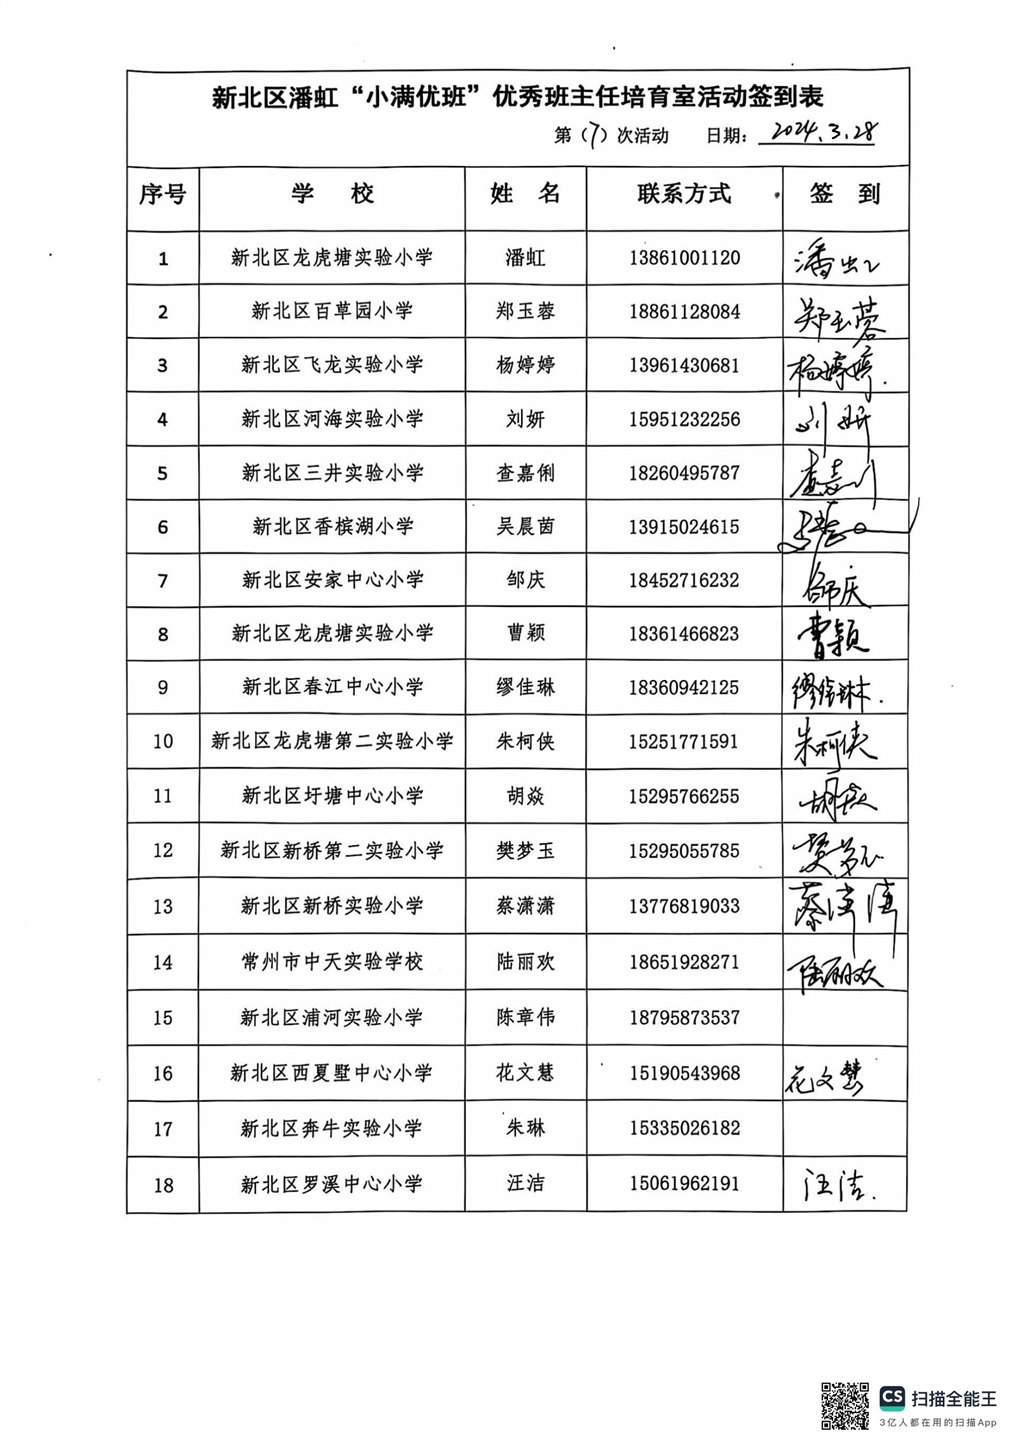 新北区潘虹“小满优班”优秀班主任培育室活动签到表
第（7）次活动 日期：2024.3.28
序号 学 校 姓 名 联系方式 签 到
1 新北区龙虎塘实验小学 潘虹 13861001120 潘虹
2 新北区百草园小学 郑玉蓉 18861128084 郑玉蓉
3 新北区飞龙实验小学 杨婷婷 13961430681 杨婷婷
4 新北区河海实验小学 刘妍 15951232256 刘妍
5 新北区三井实验小学 查嘉俐 18260495787 查嘉俐
6 新北区香槟湖小学 吴晨茵 13915024615
7 新北区安家中心小学 邹庆 18452716232 邹庆
8 新北区龙虎塘实验小学 曹颖 18361466823 曹颖
9 新北区春江中心小学 缪佳琳 18360942125 缪佳琳
10 新北区龙虎塘第二实验小学 朱柯侠 15251771591 朱柯侠
11 新北区圩塘中心小学 胡焱 15295766255 胡焱
12 新北区新桥第二实验小学 樊梦玉 15295055785 樊梦玉
13 新北区新桥实验小学 蔡潇潇 13776819033 蔡潇潇
14 常州市中天实验学校 陆丽欢 18651928271 陆丽欢
15 新北区浦河实验小学 陈章伟 18795873537
16 新北区西夏墅中心小学 花文慧 15190543968 花文慧
17 新北区奔牛实验小学 朱琳 15335026182
18 新北区罗溪中心小学 汪洁 15061962191 汪洁
CS 扫描全能王
3亿人都在用的扫描App